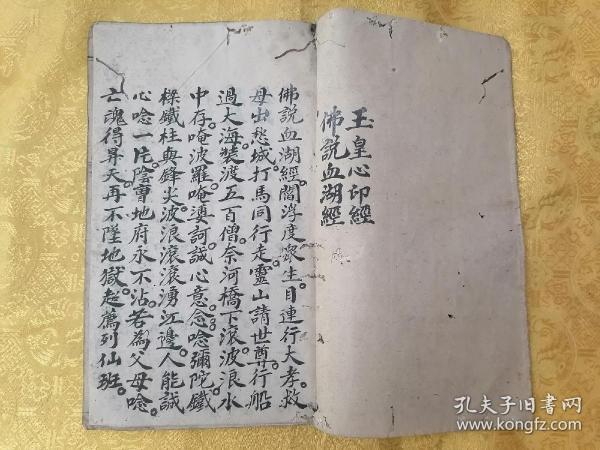 玉皇心印經
佛説血湖經
佛説血湖經閻浮度眾生目連行大孝救
母出愁城打馬同行走靈山請世尊行船
過大海裝渡五百僧奈河橋下滾波浪水
中存唵波羅唵婆訶誠心意念唸彌陀鐵
樑鐵柱與鋒火波浪滾滾湧江邊人能誠
心唸一片陰曹地府永不沾若為父母唸
亡魂得昇天再不墜地獄超薦列仙班
孔夫子旧书网
www.kongfz.com